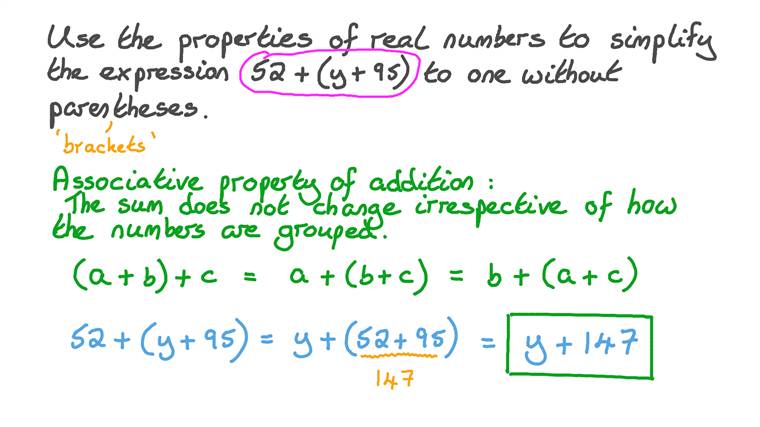 Use the properties of real numbers to simplify
the expression 52 + (y + 95) to one without
parentheses.
'brackets'
Associative property of addition :
The sum does not change irrespective of how
the numbers are grouped.
(a + b) + c = a + (b + c) = b + (a + c)
52 + (y + 95) = y + (52 + 95) = y + 147
147